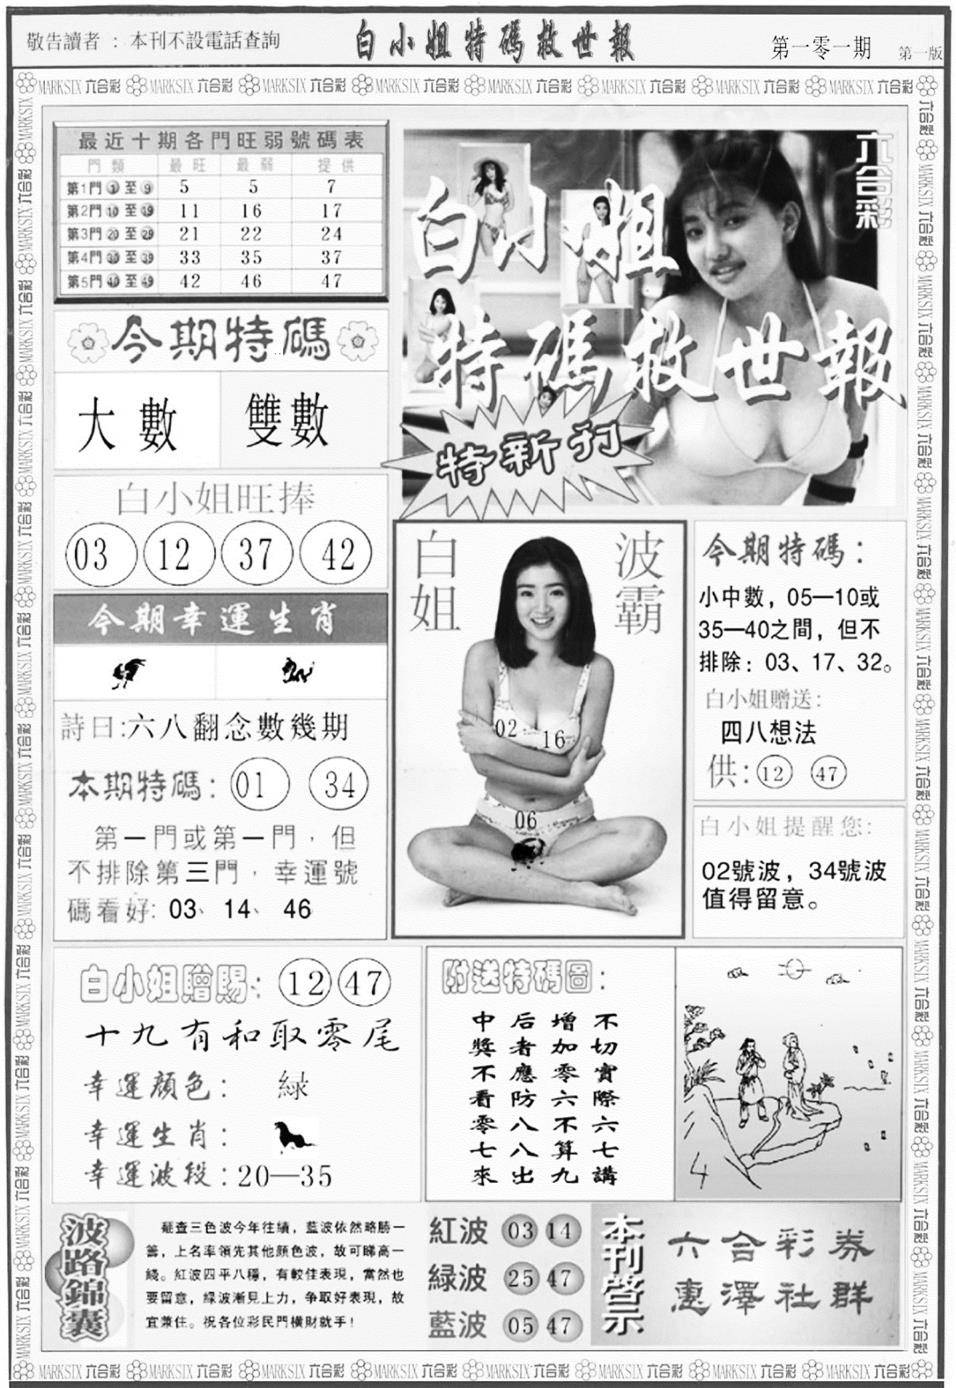 敬告讀者 ： 本刊不設電話查詢
白小姐特碼救世報
第一零一期 第一版
MARKSIX 六合彩
最近十期各門旺弱號碼表
門類 最旺 最弱 提供
第1門 ① 至 ⑨ 5 5 7
第2門 ⑩ 至 ⑲ 11 16 17
第3門 ⑳ 至 ㉙ 21 22 24
第4門 ㉚ 至 ㊴ 33 35 37
第5門 ㊵ 至 ㊾ 42 46 47
今期特碼
大數 雙數
白小姐旺捧
03 12 37 42
今期幸運生肖
詩曰:六八翻念數幾期
本期特碼: 01 34
第一門或第一門，但
不排除第三門，幸運號
碼看好: 03、14、46
六合彩
白小姐
特碼救世報
特新刊
白姐
波霸
02 16
06
今期特碼：
小中數，05—10或
35—40之間，但不
排除：03、17、32。
白小姐贈送:
四八想法
供: 12 47
白小姐提醒您:
02號波，34號波
值得留意。
白小姐贈賜: 12 47
十九有和取零尾
幸運顏色： 綠
幸運生肖：
幸運波段:20—35
附送特碼圖：
不切實際六七講
增加零六不算九
后者應防八八出
中獎不看零七來
4
波路錦囊
縱查三色波今年往績，藍波依然略勝一
籌，上名率領先其他顏色波，故可睇高一
綫。紅波四平八穩，有較佳表現，當然也
要留意，綠波漸見上力，爭取好表現，故
宜兼住。祝各位彩民門橫財就手！
紅波 03 14
綠波 25 47
藍波 05 47
本刊啓示
六合彩券
惠澤社群